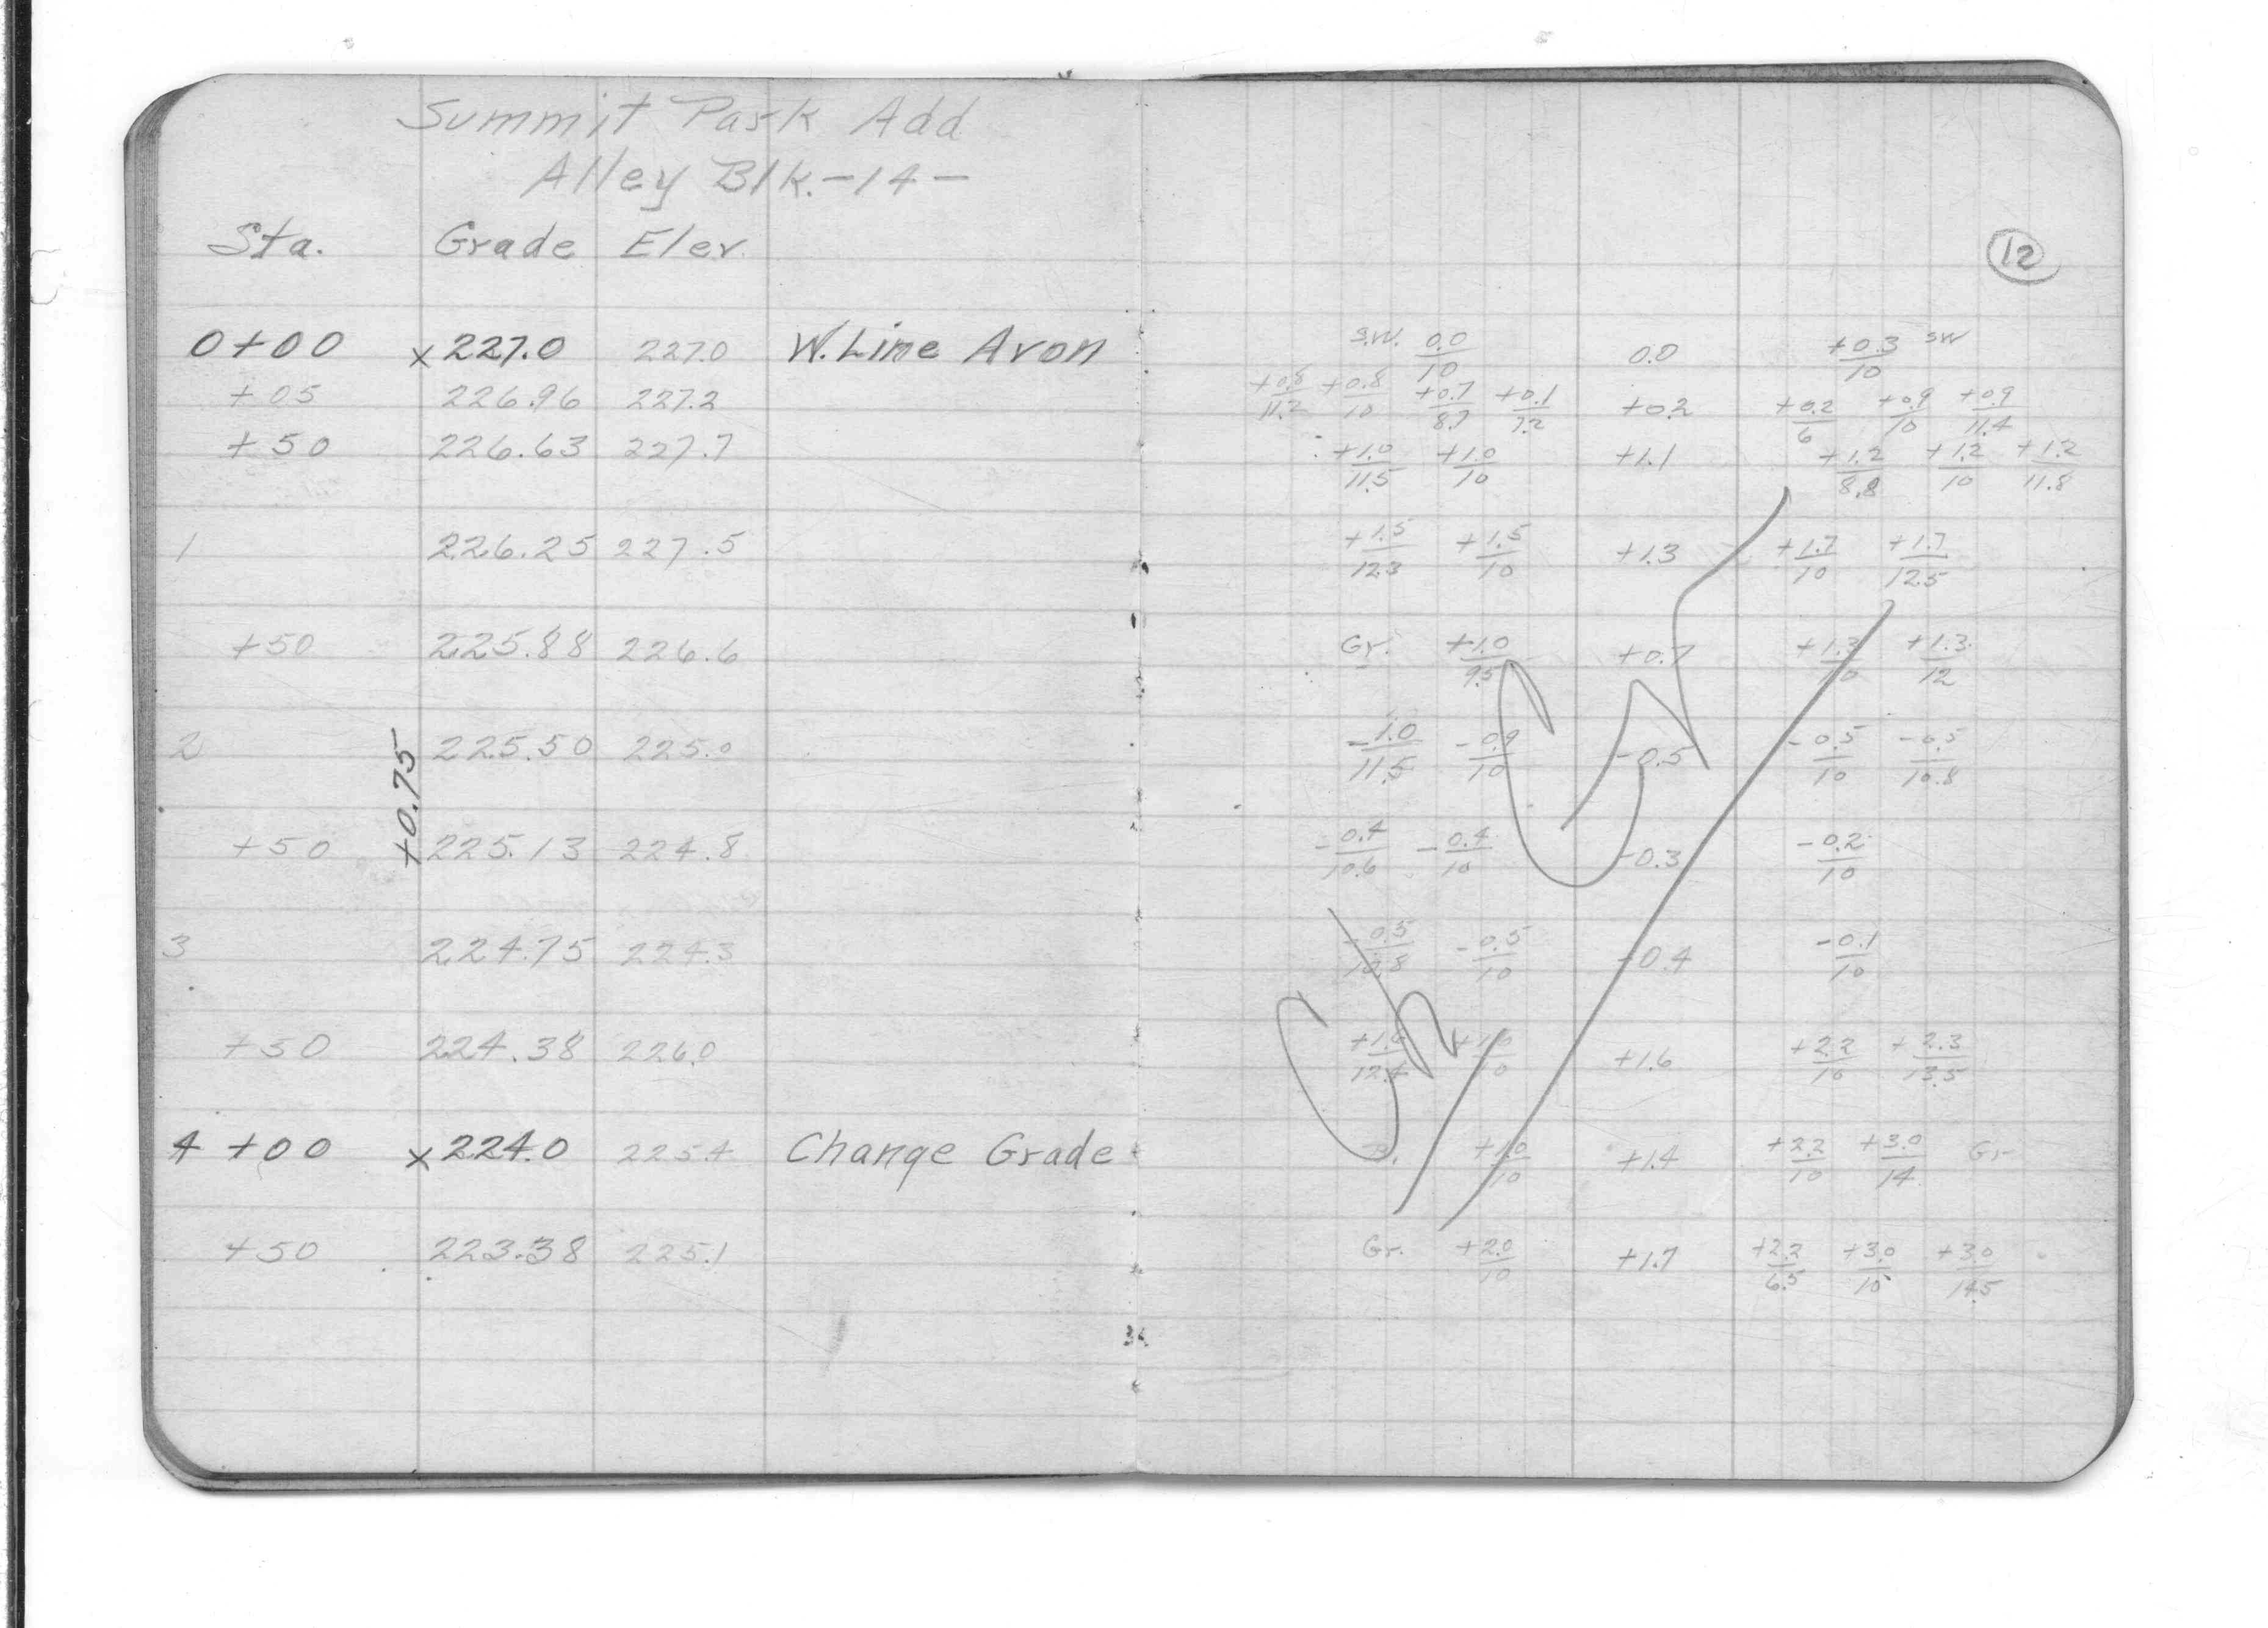 Summit Park Add
Alley Blk.-14-
Sta. Grade Elev.
12
0+00 x 227.0 227.0 W. Line Avon S.W. 0.0/10 0.0 +0.3/10 SW
+05 226.96 227.2 +0.8/11.2 +0.8/10 +0.7/8.7 +0.1/7.2 +0.2 +0.2/6 +0.9/10 +0.9/11.4
+50 226.63 227.7 +1.0/11.5 +1.0/10 +1.1 +1.2/8.8 +1.2/10 +1.2/11.8
1 226.25 227.5 +1.5/12.3 +1.5/10 +1.3 +1.7/10 +1.7/12.5
+50 225.88 226.6 Gr. +1.0/9.5 +0.7 +1.3/10 +1.3/12
2 225.50 225.0 -1.0/11.5 -0.9/10 -0.5 -0.5/10 -0.5/10.8
+0.75
+50 225.13 224.8 -0.4/10.6 -0.4/10 -0.3 -0.2/10
3 224.75 224.3 -0.5/10.8 -0.5/10 -0.4 -0.1/10
+50 224.38 226.0 +1.6/12.4 +1.6/10 +1.6 +2.2/10 +2.3/13.5
4+00 x 224.0 225.4 Change Grade +1.0/10 +1.4 +2.2/10 +3.0/14 Gr
+50 223.38 225.1 Gr. +2.0/10 +1.7 +2.2/6.5 +3.0/10 +3.0/14.5